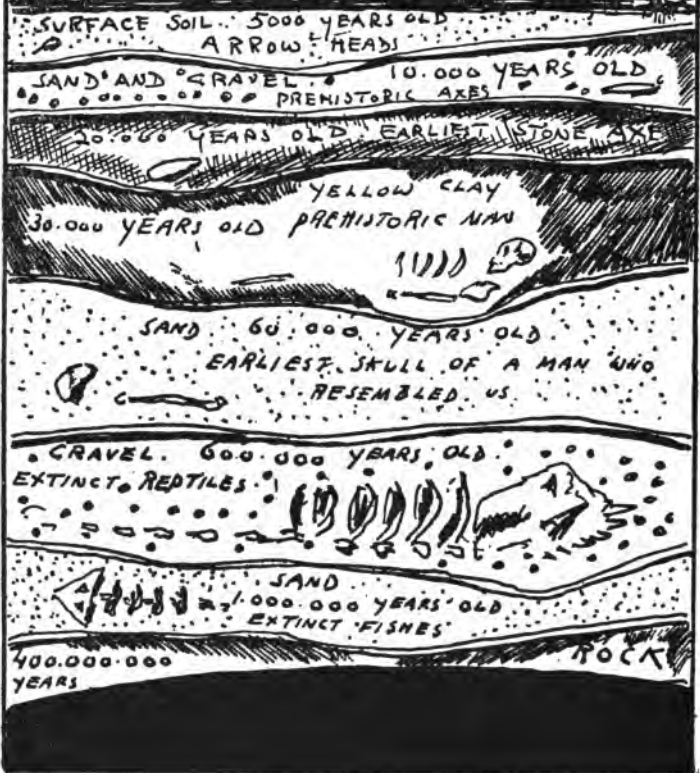 SURFACE SOIL. 5000 YEARS OLD
ARROW HEADS
SAND AND GRAVEL. 10.000 YEARS OLD
PREHISTORIC AXES
20.000 YEARS OLD. EARLIEST STONE AXE
YELLOW CLAY
30.000 YEARS OLD PREHISTORIC MAN
SAND 60.000 YEARS OLD.
EARLIEST SKULL OF A MAN WHO
RESEMBLED US
GRAVEL. 600.000 YEARS OLD.
EXTINCT REPTILES.
SAND
1.000.000 YEARS OLD
EXTINCT FISHES
400.000.000 ROCK
YEARS